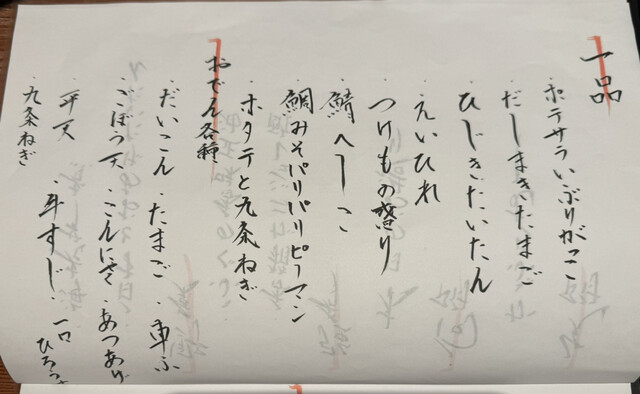 一品
・ポテサラいぶりがっこ
・だしまきたまご
・ひじきたいたん
・えいひれ
・つけもの盛り
・鯖へしこ
・鯛みそパリパリピーマン
・ホタテと九条ねぎ
おでん各種
・だいこん ・たまご ・車ふ
・ごぼう天 ・こんにゃく ・あつあげ
・平天 ・牛すじ ・一口ひろうす
・九条ねぎ